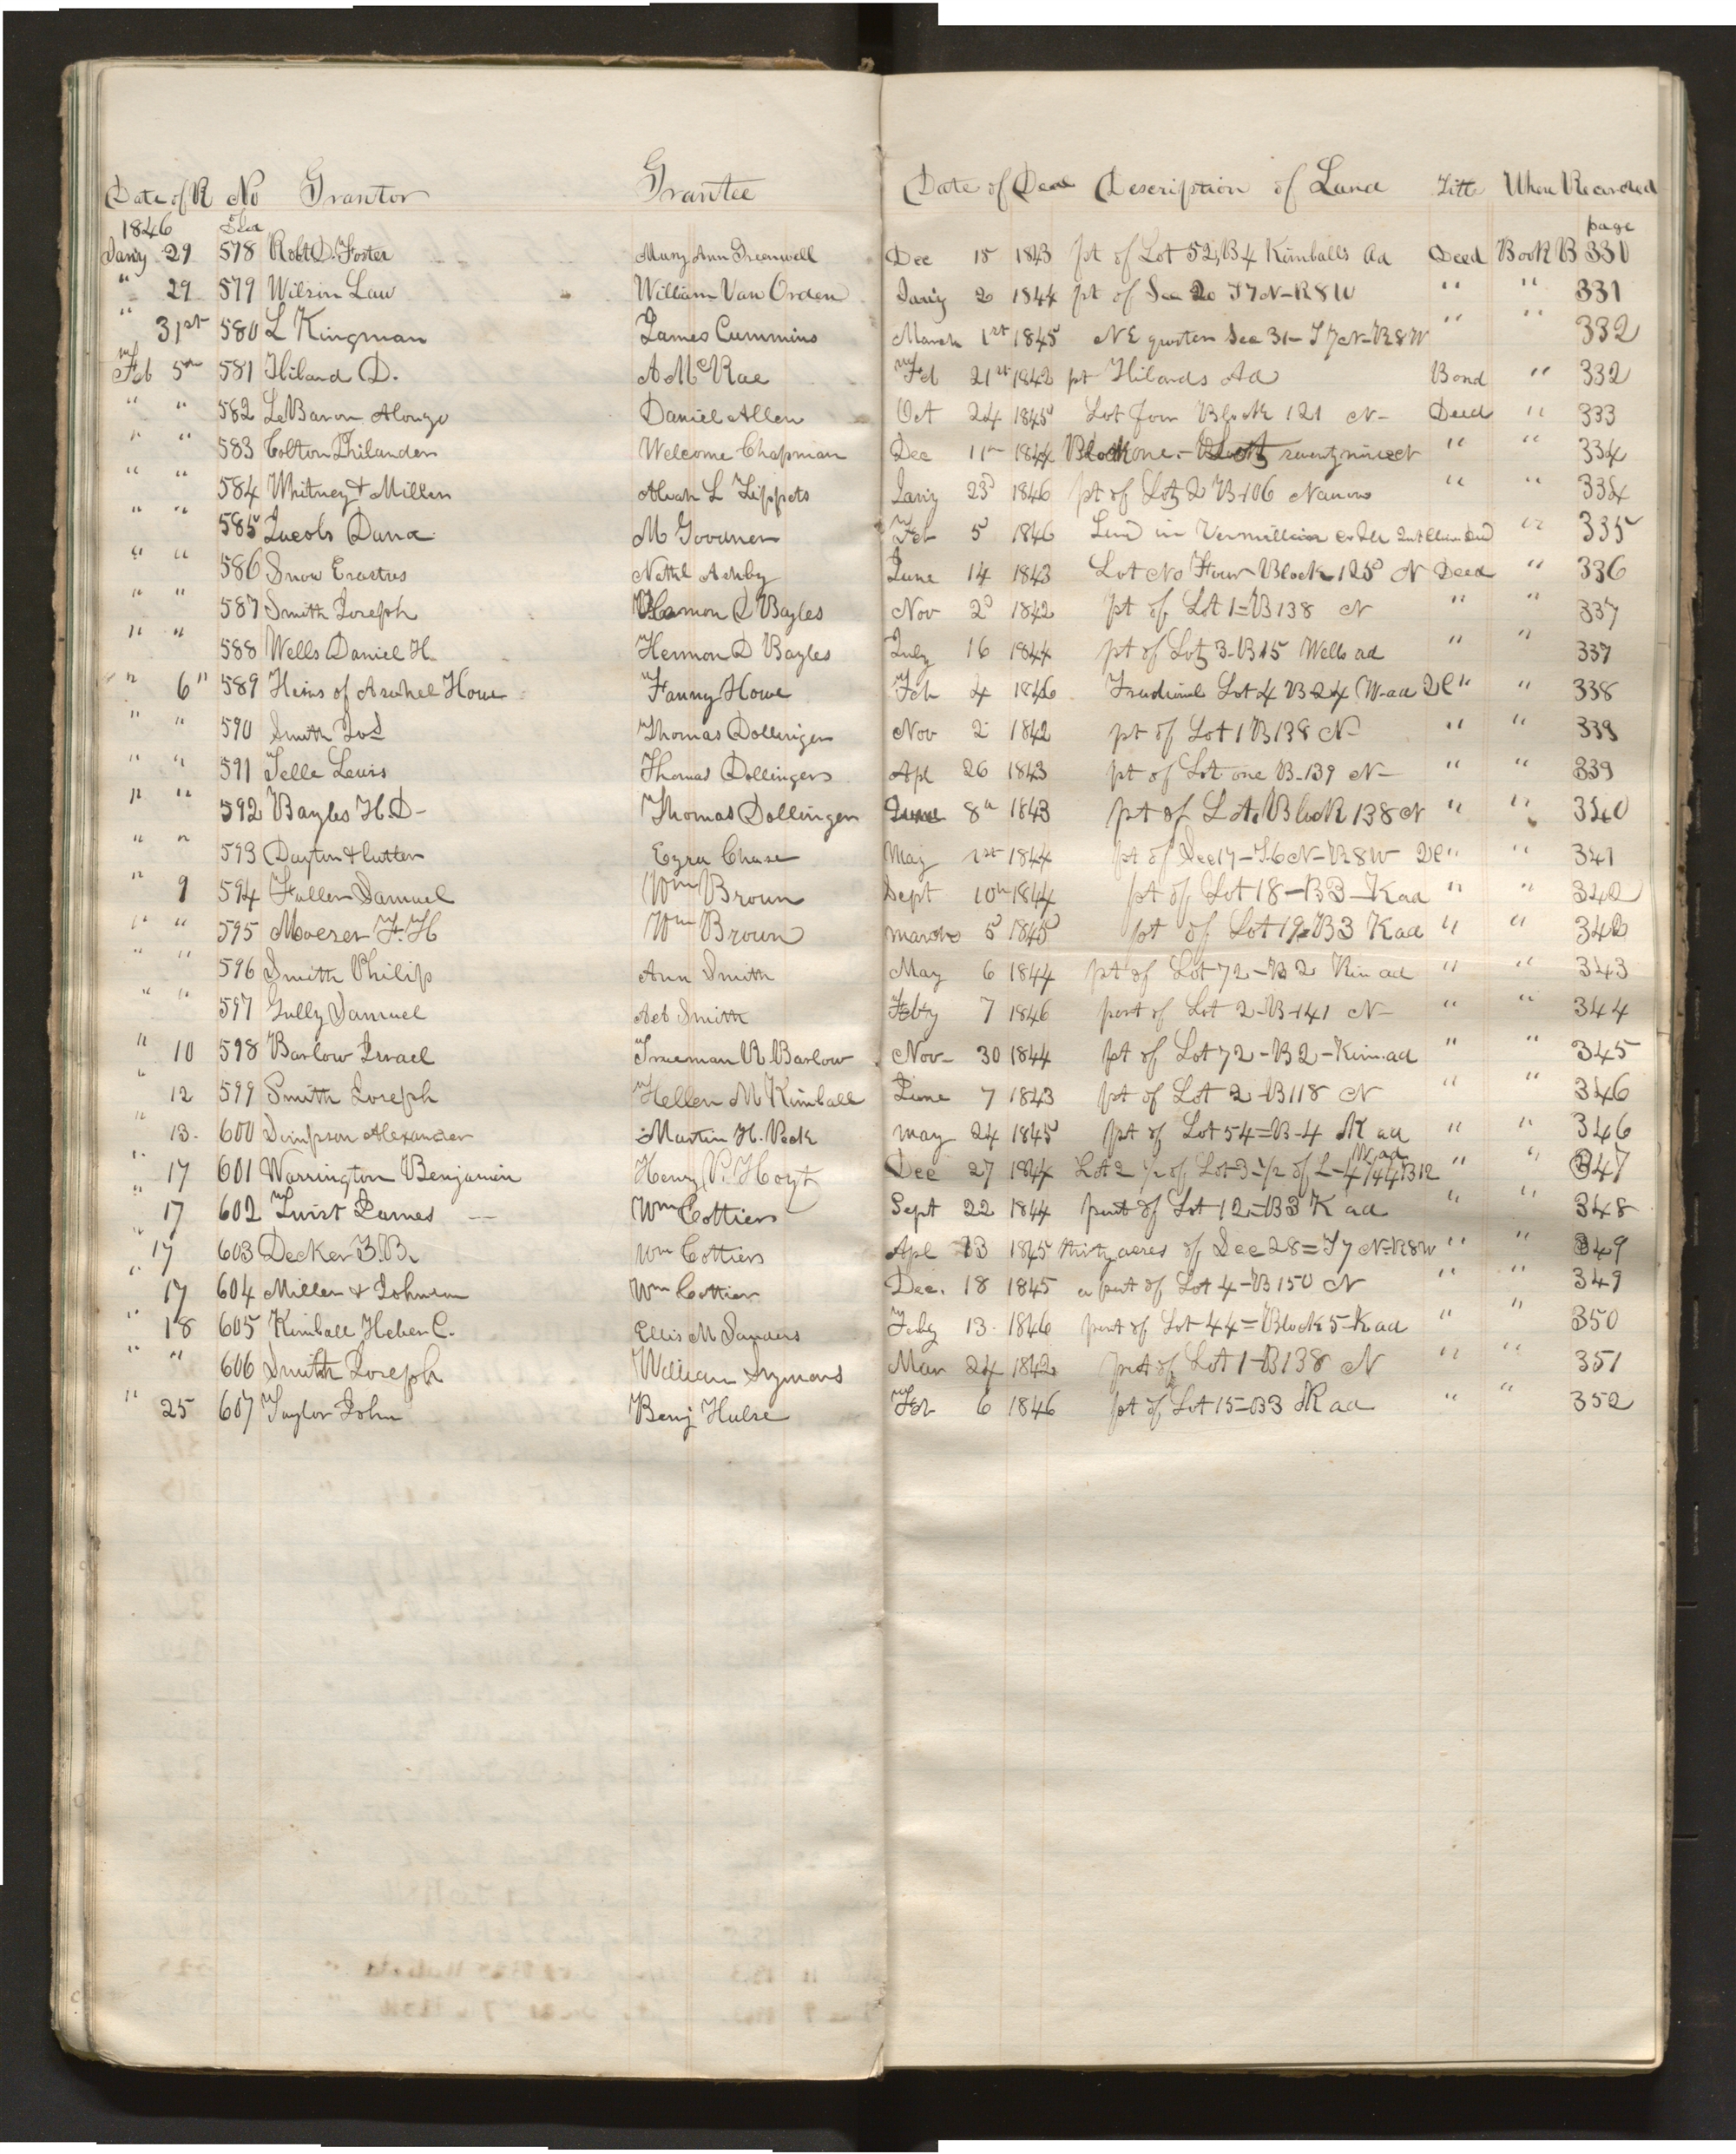 Date of R No Grantor Grantee Date of Deed Description of Land Title When Recorded
1846 page
Jan'y 29 578 Robt D. Foster Mary Ann Greenwell Dec 15 1843 pt of Lot 52, B4 Kimballs Ad Deed Book B 330
" 29 579 Wilson Law William Van Orden Jan'y 2 1844 pt of Sec 20 T7N-R8W " " 331
" 31st 580 L Kingman James Cummins March 1st 1845 NE quarter Sec 31-T7N-R8W " " 332
Feb 5th 581 Hibard D. A McRae Feb 21st 1842 pt Hibards Ad Bond " 332
" " 582 LeBaron Alonzo Daniel Allen Oct 24 1845 Lot four Block 121 N- Deed " 333
" " 583 Colton Philander Welcome Chapman Dec 11th 1844 Block one - seventy nine N " " 334
" " 584 Whitney & Miller Alvah L Tippets Jan'y 23d 1846 pt of Lot 2 B-106 Nauvoo " " 334
" " 585 Jacobs Dana M Goodner Feb 5 1846 Land in Vermillion Co Ills Quit Claim Deed " 335
" " 586 Snow Erastus Nathl Ashby June 14 1843 Lot No Four Block 125 N Deed " 336
" " 587 Smith Joseph Hermon D Bayles Nov 2d 1842 pt of Lot 1=B138 N " " 337
" " 588 Wells Daniel H. Hermon D Bayles July 16 1844 pt of Lot 3-B15 Wells ad " " 337
" 6" 589 Heirs of Asahel Howe Fanny Howe Feb 4 1846 Fractional Lot 4 B24 W-ad 2C" " 338
" " 590 Smith Jos Thomas Dollinger Nov 2 1842 pt of Lot 1 B138 N- " " 339
" " 591 Telle Lewis Thomas Dollingers Apl 26 1843 pt of Lot one B-139 N- " " 339
" " 592 Bayles H.D- Thomas Dollinger June 8th 1843 pt of Lot 1, Block 138 N " " 340
" " 593 Dayton & Cutler Ezra Chase May 1st 1844 pt of Sec 17-T6N-R8W 2C" " 341
" 9 594 Fuller Samuel Wm Brown Sept 10th 1844 pt of Lot 18-B3-K ad " " 342
" " 595 Moeser F.H Wm Brown March 5 1845 pt of Lot 19=B3 K ad " " 342
" " 596 Smith Philip Ann Smith May 6 1844 pt of Lot 72-B2 Kim ad " " 343
" " 597 Gully Samuel Smith Feb'y 7 1846 part of Lot 2-B-141 N- " " 344
" 10 598 Barlow Israel Trueman R. Barlow Nov- 30 1844 pt of Lot 72-B2-Kim. ad " " 345
" 12 599 Smith Joseph Hellen M Kimball June 7 1843 pt of Lot 2-B118 N " " 346
" 13. 600 Simpson Alexander Martin H. Peck May 24 1845 pt of Lot 54=B-4 K ad " " 346
" 17 601 Warrington Benjamin Henry P. Hoyt Dec 27 1844 Lot 2 1/2 of Lot 3-1/2 of L-4 B12 W ad " " 347
" 17 602 Twist James Wm Cottiers Sept 22 1844 part of Lot 12=B3 K ad " " 348
" 17 603 Decker Z.B. Wm Cottiers Apl 13 1845 thirty acres of Sec 28=T7N-R8W " " 349
" 17 604 Miller & Johnson Wm Cottier Dec. 18 1845 a part of Lot 4-B150 N " " 349
" 18 605 Kimball Heber C. Ellis M Sanders Feby 13. 1846 part of Lot 44=Block 5-K ad " " 350
" " 606 Smith Joseph William Symons Mar 24 1842 part of Lot 1-B138 N " " 351
" 25 607 Taylor John Benj Hulse Feb 6 1846 pt of Lot 15=B3 K ad " " 352